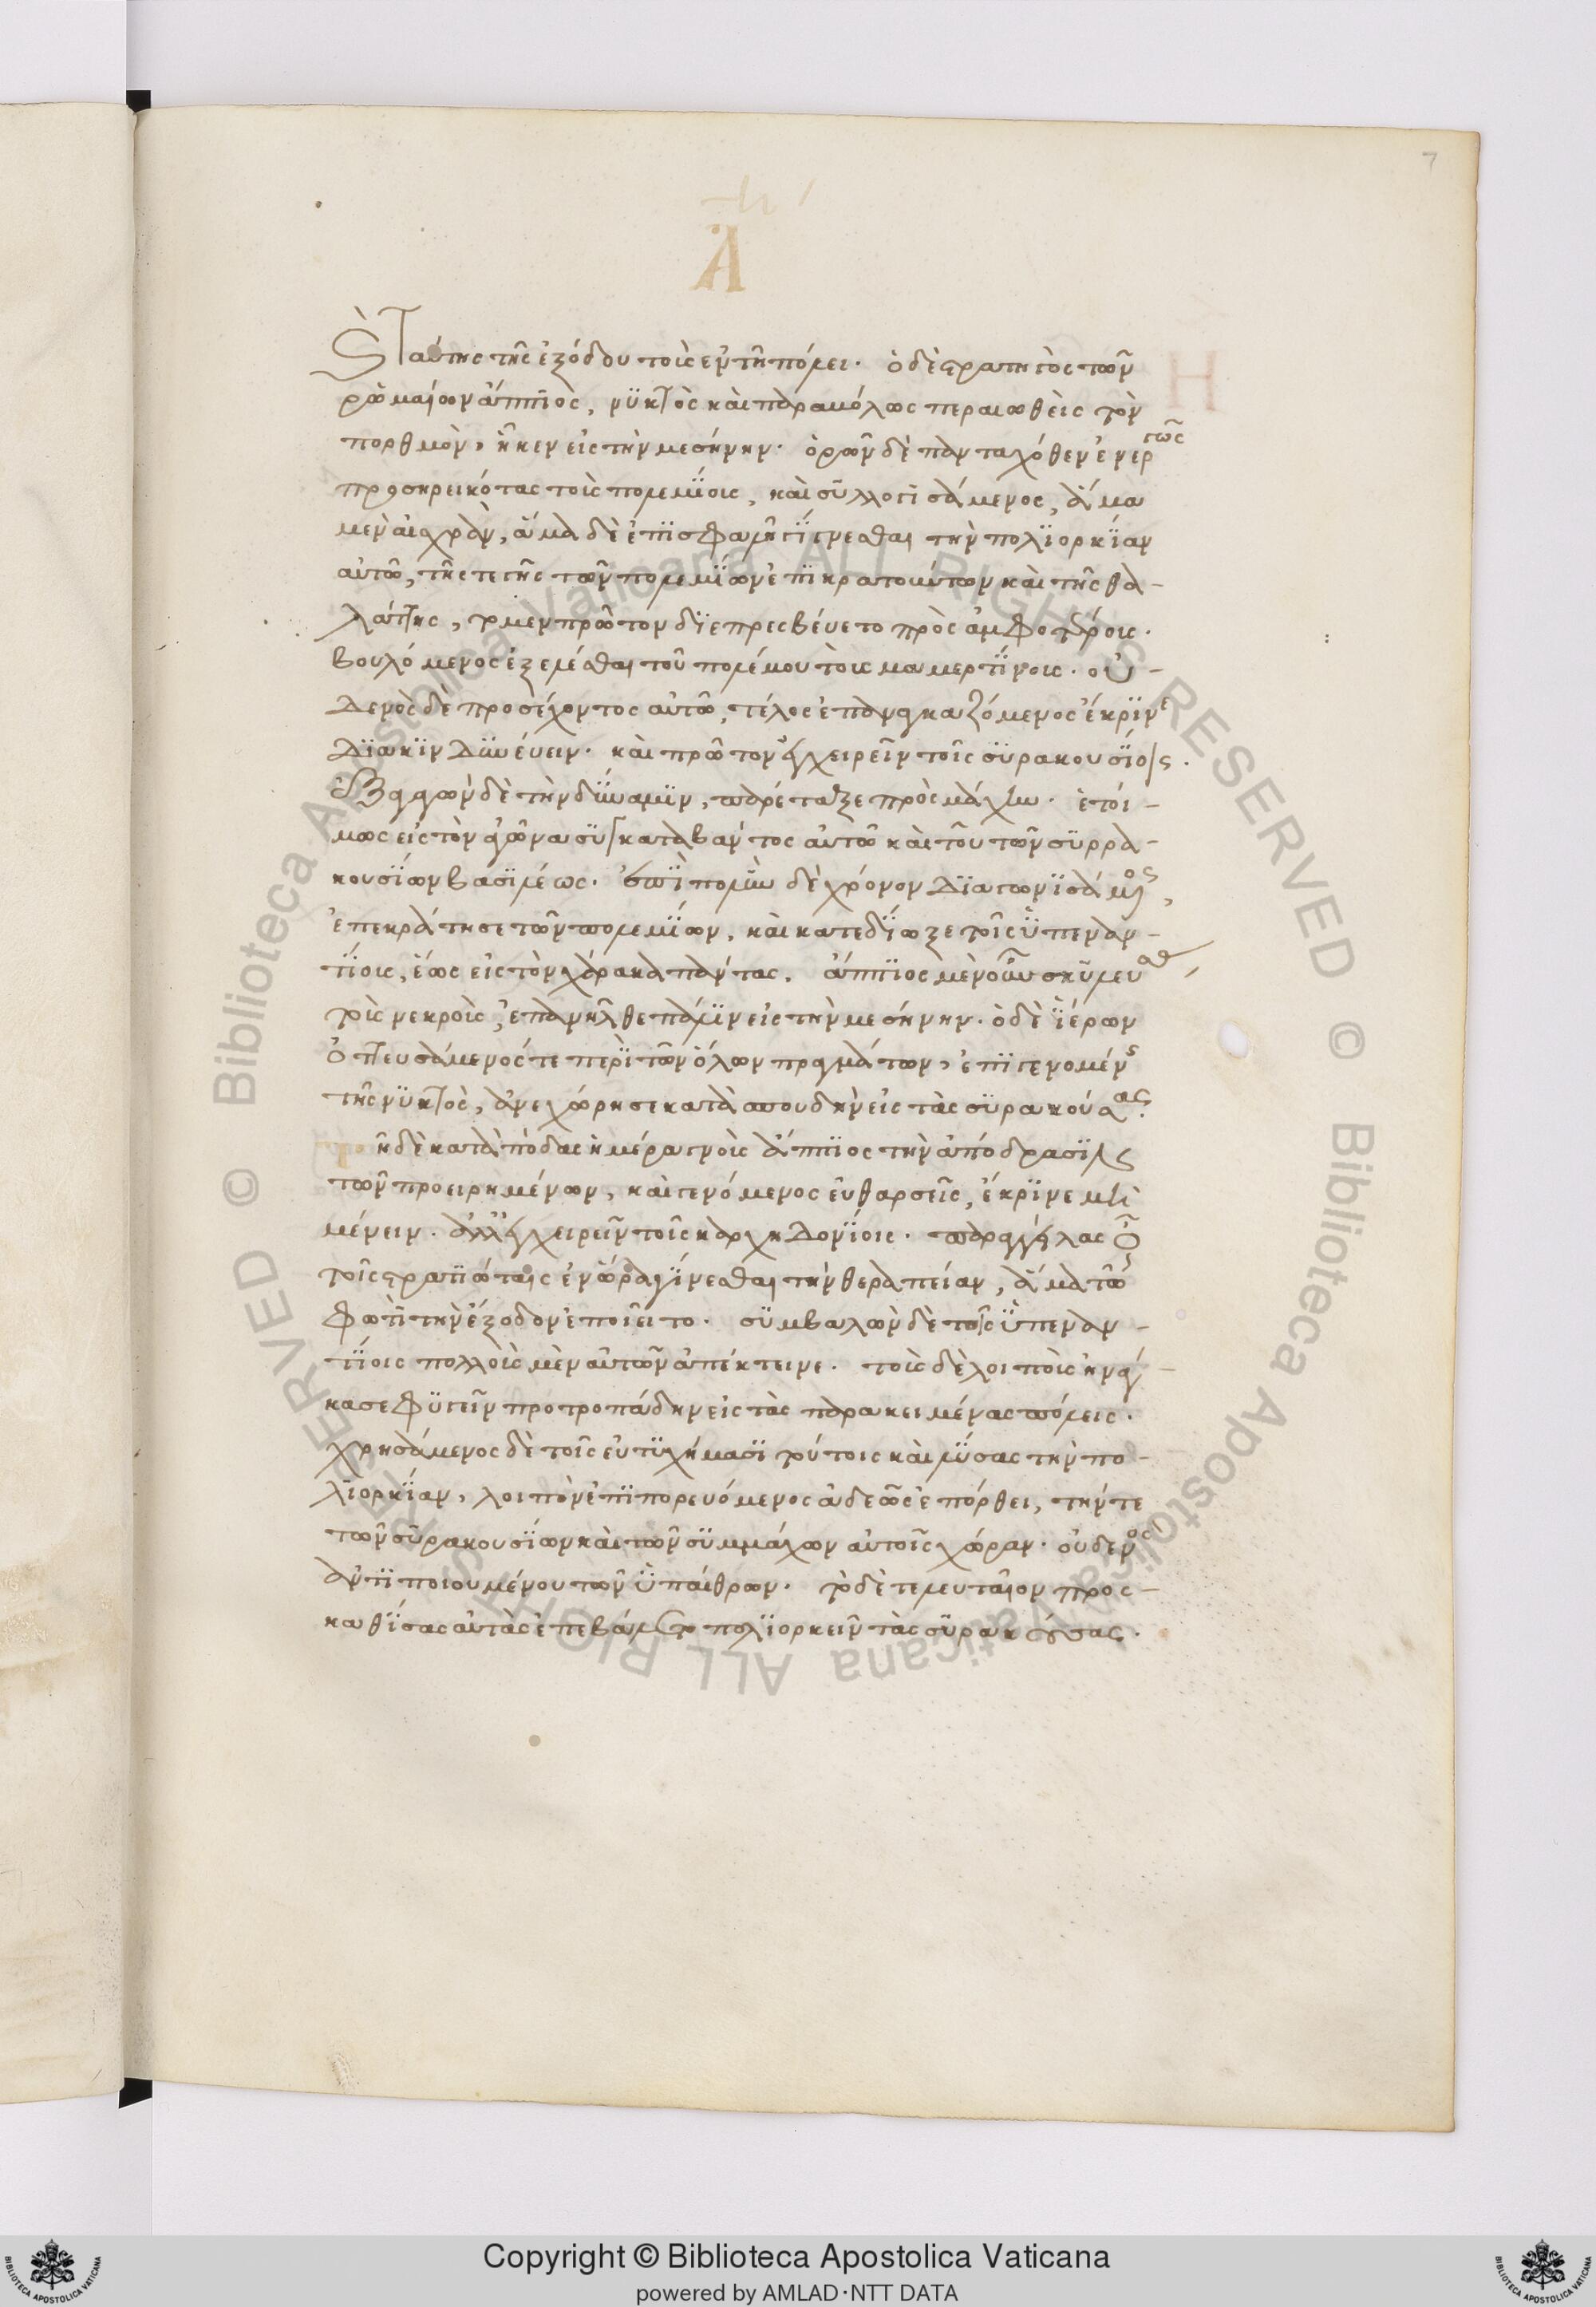 Α
Η
ἐκ ταύτης τῆς ἐξόδου τοῖς ἐν τῆ πόλει. ὁ δὲ στρατηγὸς τῶν
ῥωμαίων ἄππϊος, νϋκτὸς καὶ παραβόλως περαιωθεὶς τὸν
πορθμὸν, ἧκεν εἰς τὴν μεσήνην. ὁρῶν δὲ πανταχόθεν ἐνεργῶς
προσηρεικότας τοὺς πολεμΐους, καὶ σϋλλογϊσάμενος, ἅμα
μὲν αἰσχρὰν, ἅμα δὲ ἐπϊσφαλῆ γΐγνεσθαι τὴν πολϊορκΐαν
αὐτῶ, τῆς τε γῆς τῶν πολεμΐων ἐπϊκρατούντων καὶ τῆς θα-
λάττης, τὸ μὲν πρῶτον δϊεπρεσβεύετο πρὸς ἀμφοτέρους.
βουλόμενος ἐξελέσθαι τοῦ πολέμου τοὺς μαμερτΐνους. οὐ-
δενὸς δὲ προσέχοντος αὐτῶ, τέλος ἐπαναγκαζόμενος ἔκρϊνε
δϊακϊνδϋνεύειν. καὶ πρῶτον ἐγχειρεῖν τοῖς σϋρακουσΐοις.
ἐξαγαγὼν δὲ τὴν δΰναμϊν, παρέταξε πρὸς μάχην. ἑτοί-
μως εἰς τὸν ἀγῶνα σϋγκαταβάντος αὐτῶ καὶ τοῦ τῶν σϋρρα-
κουσΐων βασϊλέως. ἐπῒ πολὺν δὲ χρόνον δϊαγωνϊσάμενος,
ἐπεκράτησε τῶν πολεμΐων, καὶ κατεδΐωξε τοὺς ϋπεναν-
τΐους, ἕως εἰς τὸν χάρακα πάντας. ἄππϊος μὲν οὖν σκϋλεύσας
τοὺς νεκροὺς, ἐπανῆλθε πάλϊν εἰς τὴν μεσήνην. ὁ δὲ ϊέρων
ὀττευσάμενός τε περῒ τῶν ὅλων πραγμάτων, ἐπϊγενομένης
τῆς νϋκτὸς, ἀνεχώρησε κατὰ σπουδὴν εἰς τὰς σϋρακούσας.
τῆ δὲ κατὰ πόδας ἡμέρα γνοὺς ἄππϊος τὴν ἀπόδρασϊν
τῶν προειρημένων, καὶ γενόμενος εὐθαρσεῖς, ἔκρϊνε μὴ
μένειν. ἀλλ' ἐγχειρεῖν τοῖς καρχηδονΐοις. παραγγείλας οὖν
τοῖς στρατϊώταις ἐν ὥρα γΐνεσθαι τὴν θεραπείαν, ἅμα τῶ
φωτῒ τὴν ἔξοδον ἐποιεῖτο. σϋμβαλὼν δὲ τοῖς ϋπεναν-
τΐοις πολλοὺς μὲν αὐτῶν ἀπέκτεινε. τοὺς δὲ λοιποὺς ἠνάγ-
κασε φϋγεῖν προτροπάδην εἰς τὰς παρακειμένας πόλεις.
χρησάμενος δὲ τοῖς εὐτϋχήμασϊ τούτοις καὶ λΰσας τὴν πο-
λϊορκΐαν, λοιπὸν ἐπϊπορευόμενος ἀδεῶς ἐπόρθει, τήν τε
τῶν σϋρακουσΐων καὶ τῶν σϋμμάχων αὐτοῖς χώραν. οὐδενὸς
ἀντϊποιουμένου τῶν ϋπαίθρων. τὸ δὲ τελευταῖον προς-
καθΐσας αὐτὰς ἐπεβάλετο πολϊορκεῖν τὰς σϋρακούσας.
7